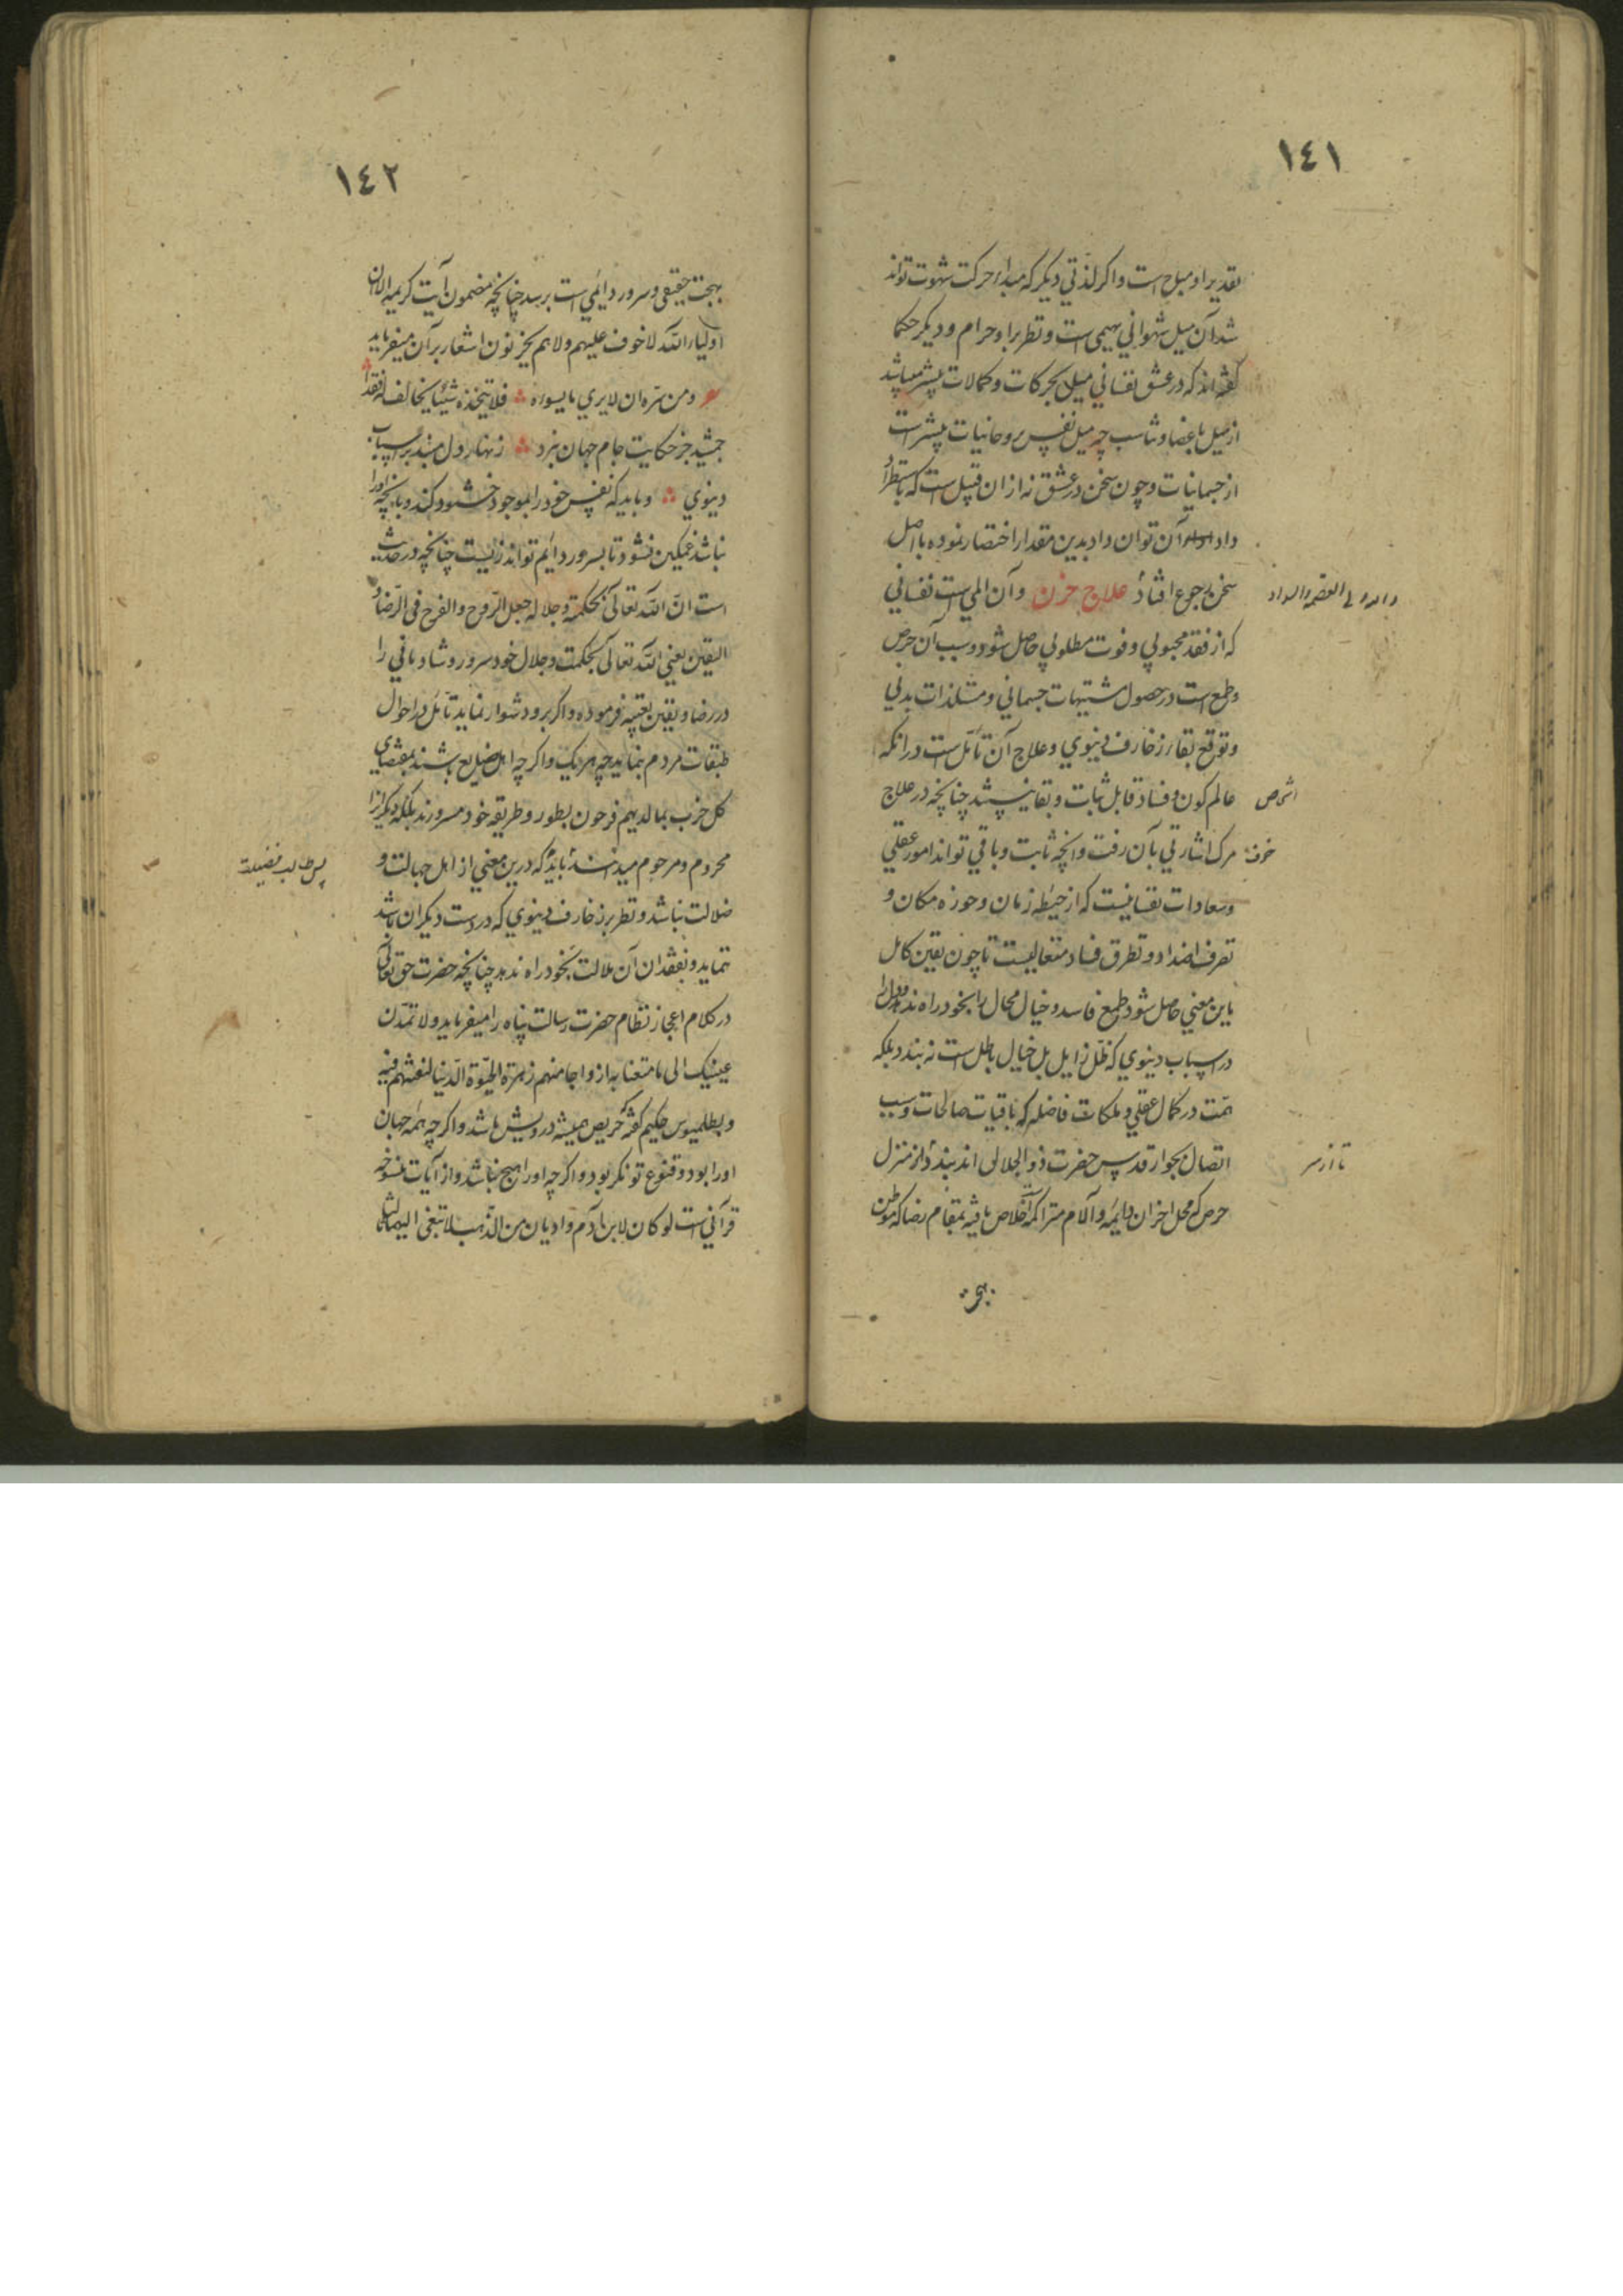 ١٤١
بقدير او مباح است واكر لذتي ديكر كه مبداء حركت شهوت تواند
شد آن ميل شهواني بهيمي است و نظر براو حرام و ديكر حكما
كفته اند كه در عشق نفساني ميل بحركات و كمالات بيشتر ميباشد
از ميل باعضا و تناسب چه ميل نفس بروحانيات بيشتر است
از جسمانيات و چون سخن در عشق نه ازان قبيل است كه باستطراد
داد آن توان داد بدين مقدار اختصار نموده با اصل
سخن رجوع افتاد علاج حزن وآن المي است نفساني
كه از فقد محبوبي و فوت مطلوبي حاصل شود و سبب آن حرص
و طمع است در حصول مشتهيات جسماني و مستلذات بدني
و توقع بقاء زخارف دنيوي و علاج آن تأمل است در انكه
عالم كون و فساد قابل ثبات و بقا نيست چنانچه در علاج
خوف مرك اشارتي بآن رفت و انچه ثابت و باقي تواند امور عقلي
و سعادات نفسانيست كه از حيطه زمان و حوزه مكان و
تصرف اضداد و تطرق فساد متعاليست تا چون يقين كامل
باين معني حاصل شود طمع فاسد و خيال محال را بخود راه ندهد و دل را
در اسباب دنيوي كه ظل زايل بل خيال باطل است نه بندد بلكه
همت در كمال عقلي و ملكات فاضله كه باقيات صالحات و سبب
اتصال بجوار قدس حضرت ذو الجلال اند بندد و از منزل
تا از سر
حرص كه محل احزان دايمه و آلام متراكمه است خلاص يافته بمقام رضا كه موطن
بهجت
١٤٢
بهجت حقيقي و سرور دايمي است برسد چنانچه مضمون آيت كريمه الا ان
اولياء الله لا خوف عليهم ولا هم يحزنون اشعار برآن ميفرمايد
و من سره ان لا يري ما يسوءه فلا يتخذ شيئا يخاف له فقدا
جمشيد جز حكايت جام جهان نبرد زنهار دل مبند بر اسباب
دنيوي و بايد كه نفس خود را بموجود خشنود كند و بانچه اورا
نباشد غمكين نشود تا بسرور دايم تواند زيست چنانچه در حديث
است ان الله تعالي بحكمته و جلاله جعل الروح والفرح في الرضا و
اليقين يعني الله تعالي بحكمت و جلال خود سرور و شادماني را
در رضا و يقين تعبيه فرموده و اكر برو دشوار نمايد تأمل در احوال
طبقات مردم نمايد چه هر يك و اكر چه اهل صنايع باشند بمقتضاي
كل حزب بما لديهم فرحون بطور و طريقه خود مسرورند بلكه ديكران را
محروم و مرحوم ميدانند بايد كه درين معني از اهل جهالت و
پس طالب فضيلت
ضلالت نباشد و نظر بر زخارف دنيوي كه در دست ديكران باشد
ننمايد و بفقدان آن ملالت بخود راه ندهد چنانچه حضرت حق تعالي
در كلام اعجاز نظام حضرت رسالت پناه را ميفرمايد ولا تمدن
عينيك الى ما متعنا به ازواجا منهم زهرة الحيوة الدنيا لنفتنهم فيه
و بطلميوس حكيم كفته حريص هميشه درويش باشد و اكر چه همه جهان
اورا بود و قنوع تونكر بود و اكر چه اورا هيچ نباشد و از آيات منسوخه
قرآني است لو كان لابن آدم واديان من الذهب لابتغى اليهما ثالثا